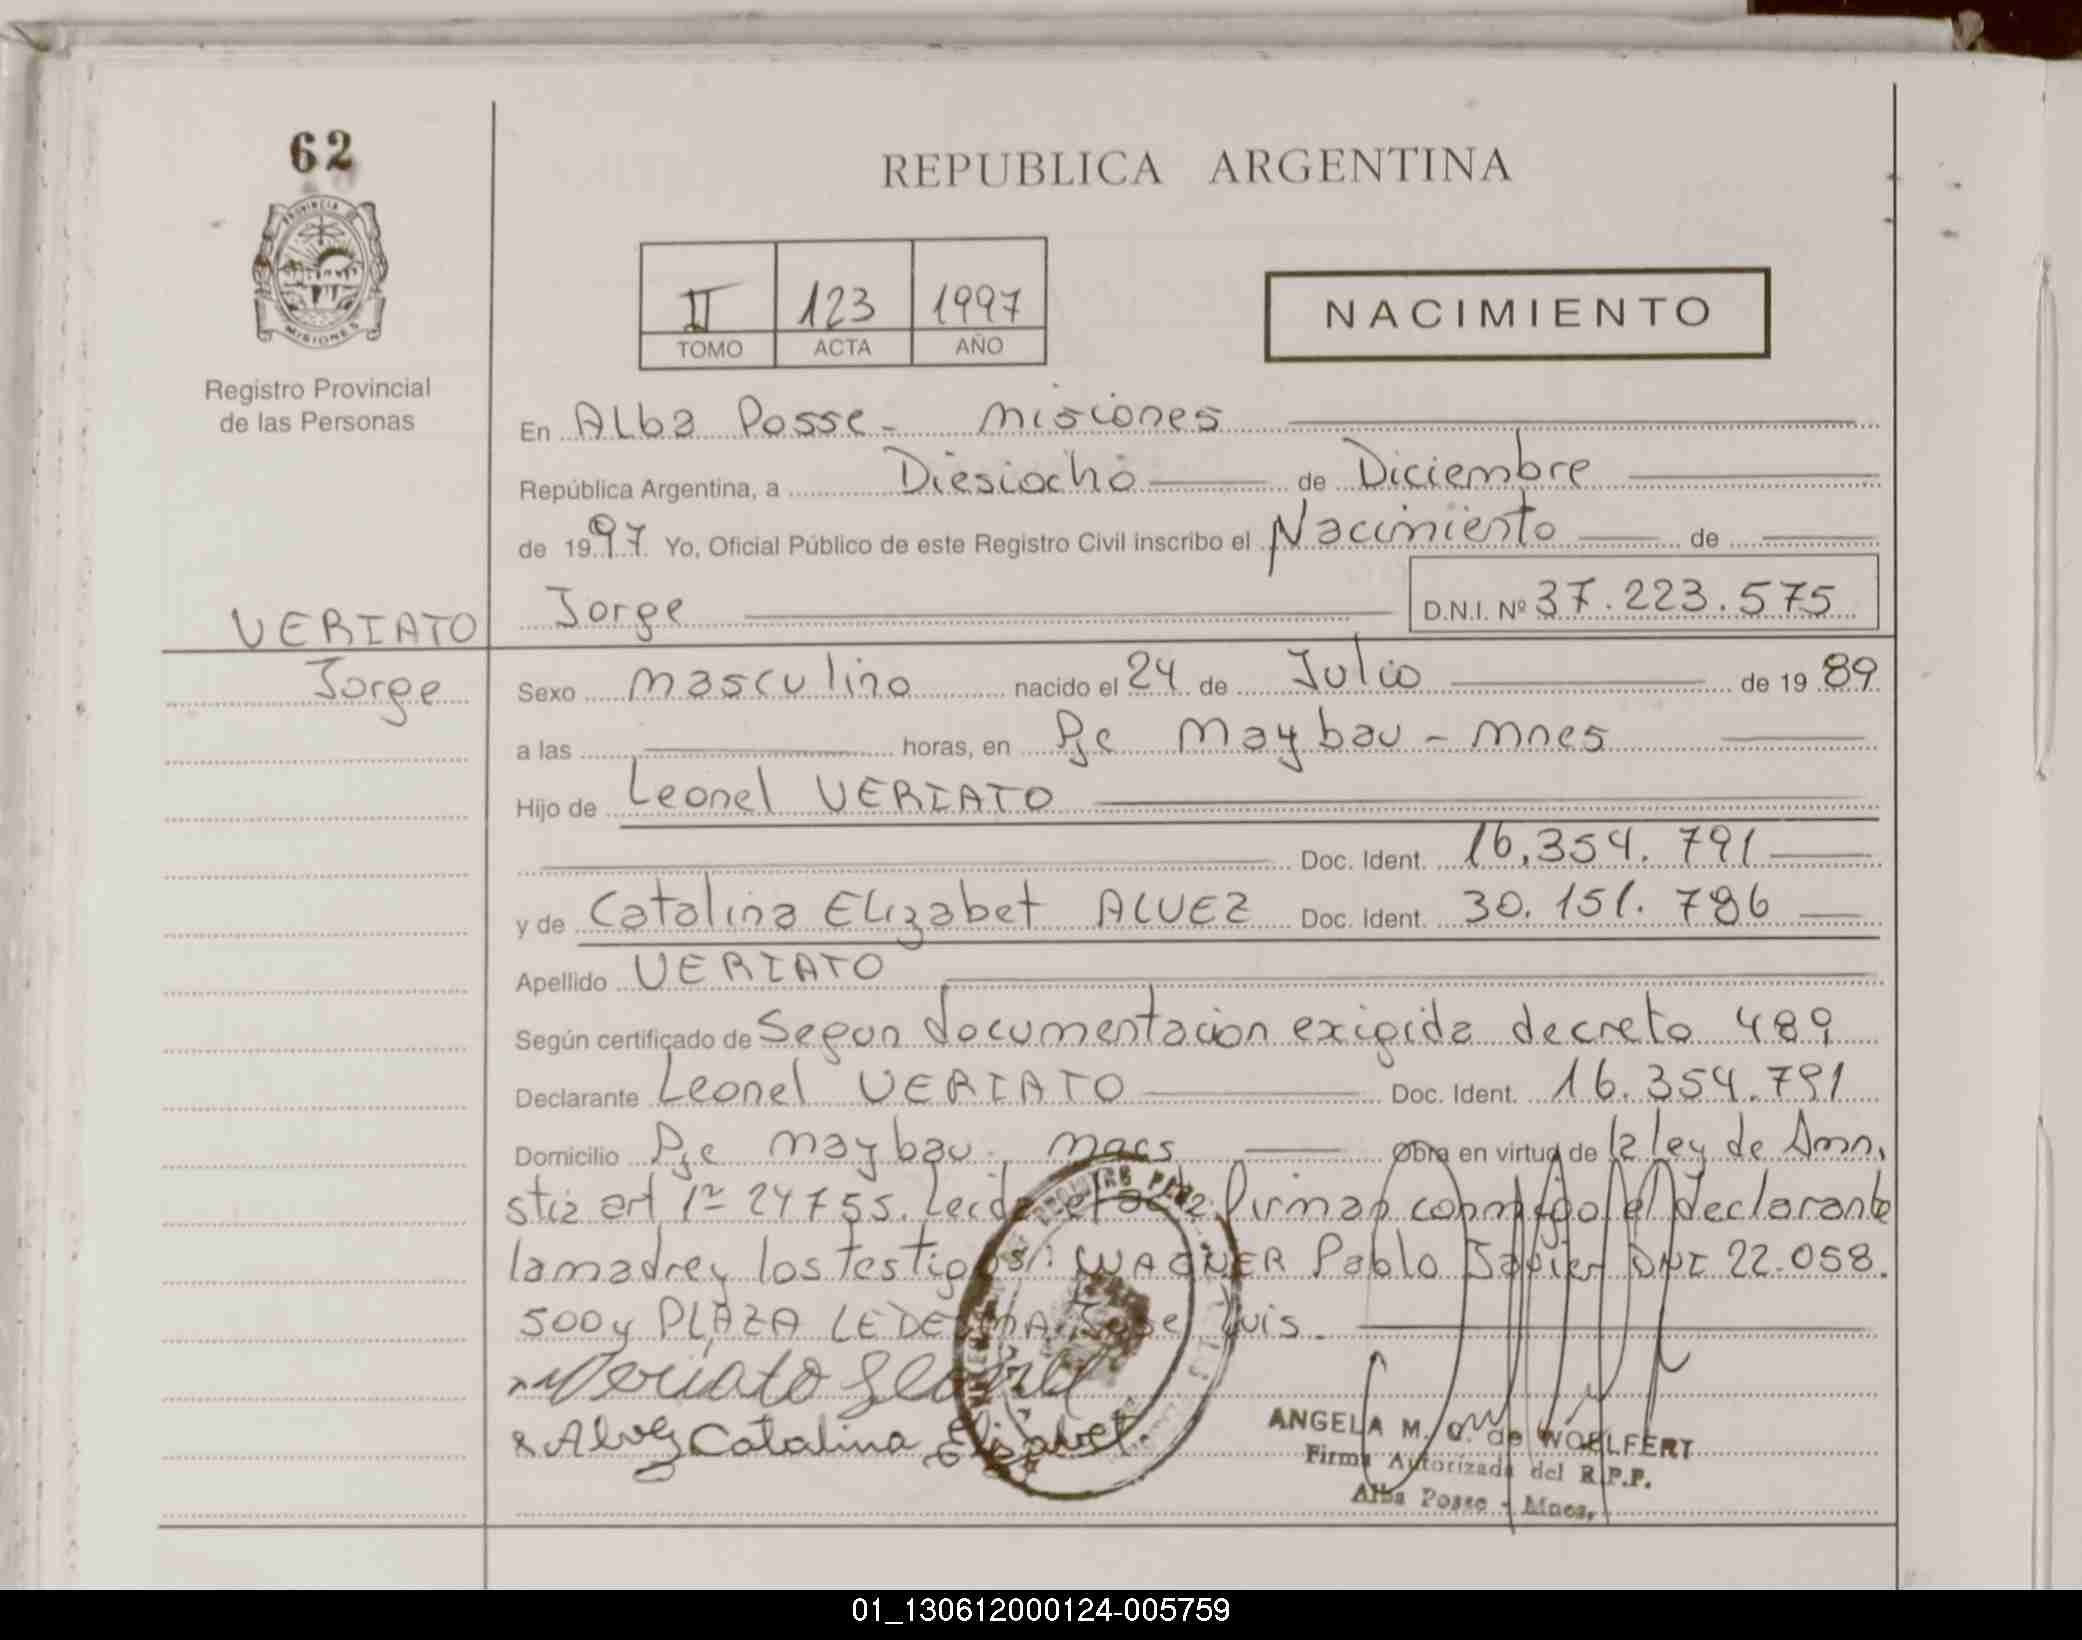 62
REPUBLICA ARGENTINA
PROVINCIA DE
MISIONES
Registro Provincial
de las Personas
II 123 1997
TOMO ACTA AÑO
NACIMIENTO
En Alba Posse - Misiones
República Argentina, a Diesiocho de Diciembre
de 1997 Yo, Oficial Público de este Registro Civil inscribo el Nacimiento de
Jorge D.N.I. Nº 37.223.575
VERIATO
Jorge
Sexo masculino nacido el 24 de Julio de 19 89
a las horas, en Pje Maybau - Mnes
Hijo de Leonel VERIATO
Doc. Ident. 16.354.791
y de Catalina Elizabet ALVEZ Doc. Ident. 30.151.786
Apellido VERIATO
Según certificado de Segun documentacion exigida decreto 489
Declarante Leonel VERIATO Doc. Ident. 16.354.791
Domicilio Pje maybau - mnes Obra en virtud de la ley de Amn,
stia art 1º 24755. Leida el acta firman conmigo el declarante
la madre y los testigos: WAGNER Pablo Javier DNI 22.058.
500 y PLAZA LEDESMA Jose Luis.
Veriato Leonel
x Alvez Catalina Elisabet.
ANGELA M. G. de WOELFERT
Firma Autorizada del R.P.P.
Alba Posse - Mnes.
01_130612000124-005759